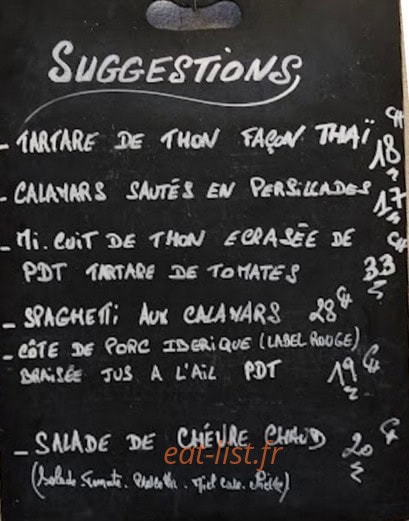 SUGGESTIONS
- TARTARE DE THON FAÇON THAÏ 18 €
- CALAMARS SAUTÉS EN PERSILLADES 17 €
- MI.CUIT DE THON ECRASÉE DE
PDT TARTARE DE TOMATES 33 €
- SPAGHETTI AUX CALAMARS 28 €
- CÔTE DE PORC IBERIQUE (LABEL ROUGE)
BRAISÉE JUS A L'AIL PDT 19 €
- SALADE DE CHÉVRE CHAUD 20 €
eat-list.fr
(Salade Tomate.